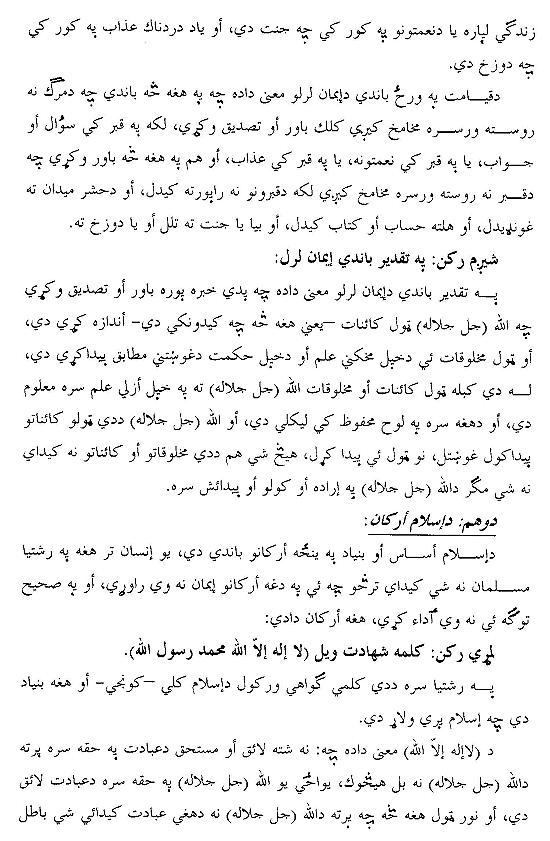 زندگي لپاره يا دنعمتونو په كور كي چه جنت دي، أو ياد دردناك عذاب په كور كي
چه دوزخ دي.
دقيـامت په ورځ باندي دإيمان لرلو معنى داده چه په هغه څه باندي چه دمرګ نه
روسـته ورسـره مخامخ كيږي كلك باور أو تصديق وكړي، لكه په قبر كي سؤال أو
جـواب، يا په قبر كي نعمتونه، يا په قبر كي عذاب، أو هم په هغه څه باور وكړي چه
دقـبر نه روسته ورسره مخامخ كيږي لكه دقبرونو نه راپورته كيدل، أو دحشر ميدان ته
غونډيدل، أو هلته حساب أو كتاب كيدل، أو بيا يا جنت ته تلل أو يا دوزخ ته.
شپږم ركن: په تقدير باندي إيمان لرل:
پـه تقدير باندي دإيمان لرلو معنى داده چه پدي خبره پوره باور أو تصديق وكړي
چه الله (جل جلاله) ټول كائنات –يعني هغه څه چه كيدونكي دي– أندازه كړي دي،
أو ټول مخلوقات ئي دخپل مخكني علم أو دخپل حكمت دغوښتني مطابق پيداكړي دي،
لـه دي كبله ټول كائنات أو مخلوقات الله (جل جلاله) ته په خپل أزلي علم سره معلوم
دي، أو دهغه سره په لوح محفوظ كي ليكلي دي، أو الله (جل جلاله) ددي ټولو كائناتو
پيداكول غوښتل، نو ټول ئي پيدا كړل، هيڅ شي هم ددي مخلوقاتو أو كائناتو نه كيداي
نه شي مګر دالله (جل جلاله) په إراده أو كولو أو پيدائش سره.
دوهم: دإسلام أركان:
دإسـلام أساس أو بنياد په پنځه أركانو باندي دي، يو إنسان تر هغه په رشتيا
مسـلمان نه شي كيداي ترڅو چه ئي په دغه أركانو إيمان نه وي راوړي، أو په صحيح
توګه ئي نه وي أداء كړي، هغه أركان دادي:
لمړي ركن: كلمه شهادت ويل (لا إله إلاّ الله محمد رسول الله).
پـه رشتيا سره ددي كلمي ګواهي وركول دإسلام كلي –كونجي– أو هغه بنياد
دي چه إسلام پري ولاړ دي.
د (لاإله إلاّ الله) معنى داده چه: نه شته لائق أو مستحق دعبادت په حقه سره پرته
دالله (جل جلاله) نه بل هيڅوك، يواځي يو الله (جل جلاله) په حقه سره دعبادت لائق
دي، أو نور ټول هغه څه چه پرته دالله (جل جلاله) نه دهغي عبادت كيدائي شي باطل